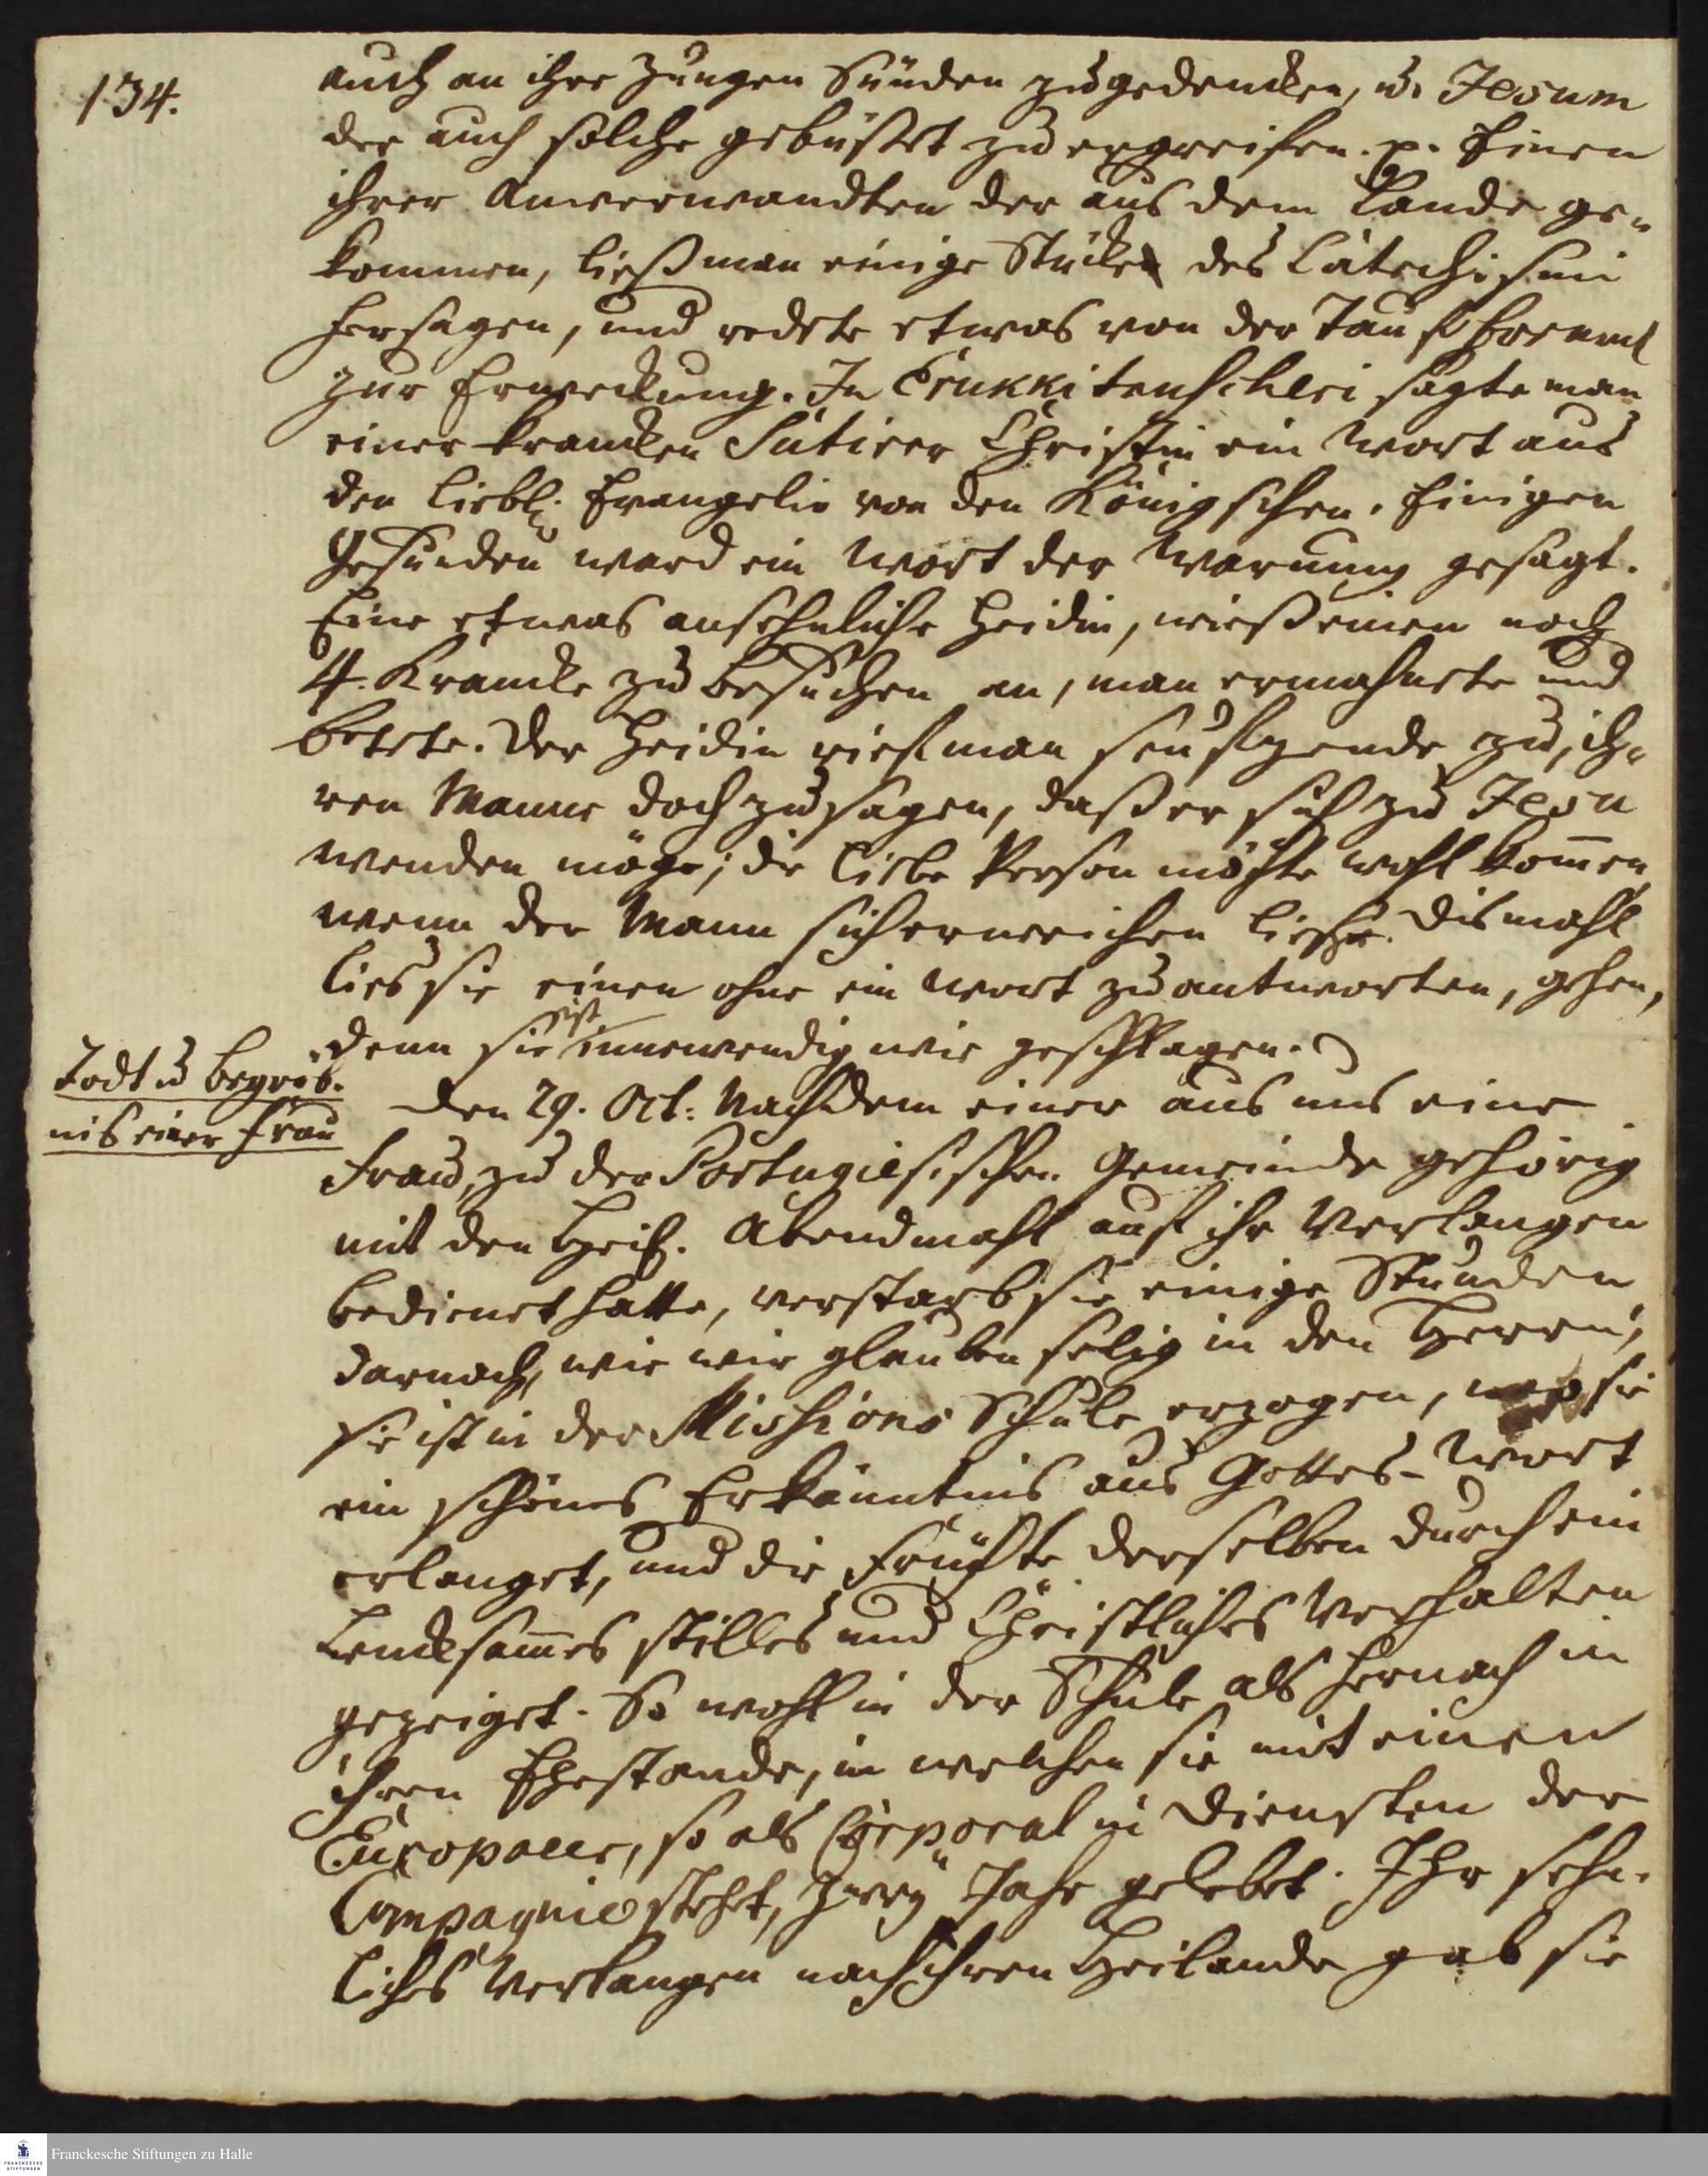 134.
auch an ihre Zungen Sünden zu gedencken, u. Jesum
der auch solche gebüßet zu ergreifen. p. Einen
ihrer Anverwandten der aus dem Lande ge¬
kommen, ließ man einige Stücke des Catechismi
hersagen, und redete etwas von der Tauf
zur Erweckung. In Erukkitenscheri sagte man
einer krancken Sutirer Christin ein Wort aus
den liebl. Evangelio von den Königschen. Einigen
Gesunden ward ein Wort der Warnung gesagt.
Eine etwas ansehnliche Heidin, wieß einen noch
4. Krancke zu besuchen an, man ermahnete und
betete. Der Heidin rief man seufzende zu, ih¬
ren Manne doch zu sagen, daß er sich zu Jesu
wenden möge; die liebe Person möchte wohl kom̄en,
wenn der Mann sich erweichen ließe. Dismahl
lies sie einen ohne ein Wort zu antworten, gehen,
denn sie ist innewendig wie geschlagen.
Todt u Begräb¬
nis einer Frau
Den 29. Oct: Nachdem einer aus uns eine
Frau, zu der Portugiesischen Gemeinde gehörig
mit den Heil. Abendmahl auf ihr Verlangen
bedienet hatte, verstarb sie einige Stunden
darnach, wie wir glauben selig in den Herrn;
sie ist in der Missions Schule erzogen, wo sie
ein schönes Erkänntnis aus Gottes-Wort
erlanget, und die Früchte derselben durch ein
lencksam̄es stilles und Christliches Verhalten
gezeiget. So wohl in der Schule als hernach in
ihren Ehestande, in welchen sie mit einen
Europaeer, so als Corporal in Diensten der
Compagnie stehet, zwey Jahr gelebet. Ihr sehn¬
liches Verlangen nach ihren Heilande gab sie
Franckesche Stiftungen zu Halle